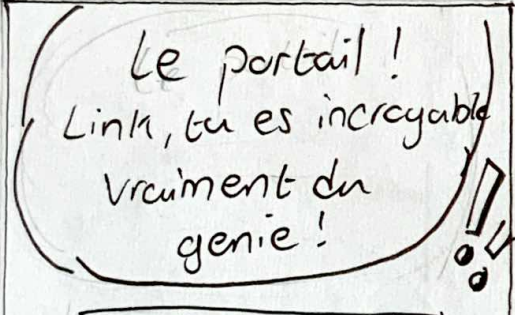 Le portail !
Link, tu es incroyable
vraiment du
genie !
!!